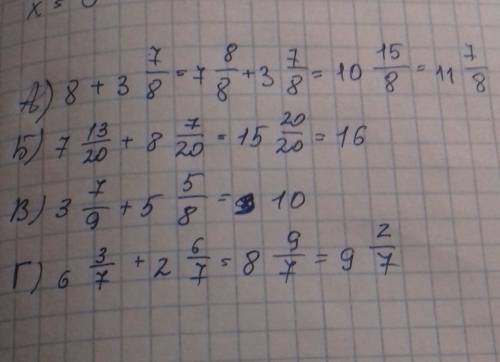 x = 0
А) 8 + 3 7/8 = 7 8/8 + 3 7/8 = 10 15/8 = 11 7/8
Б) 7 13/20 + 8 7/20 = 15 20/20 = 16
В) 3 7/9 + 5 5/8 = 10
Г) 6 3/7 + 2 6/7 = 8 9/7 = 9 2/7